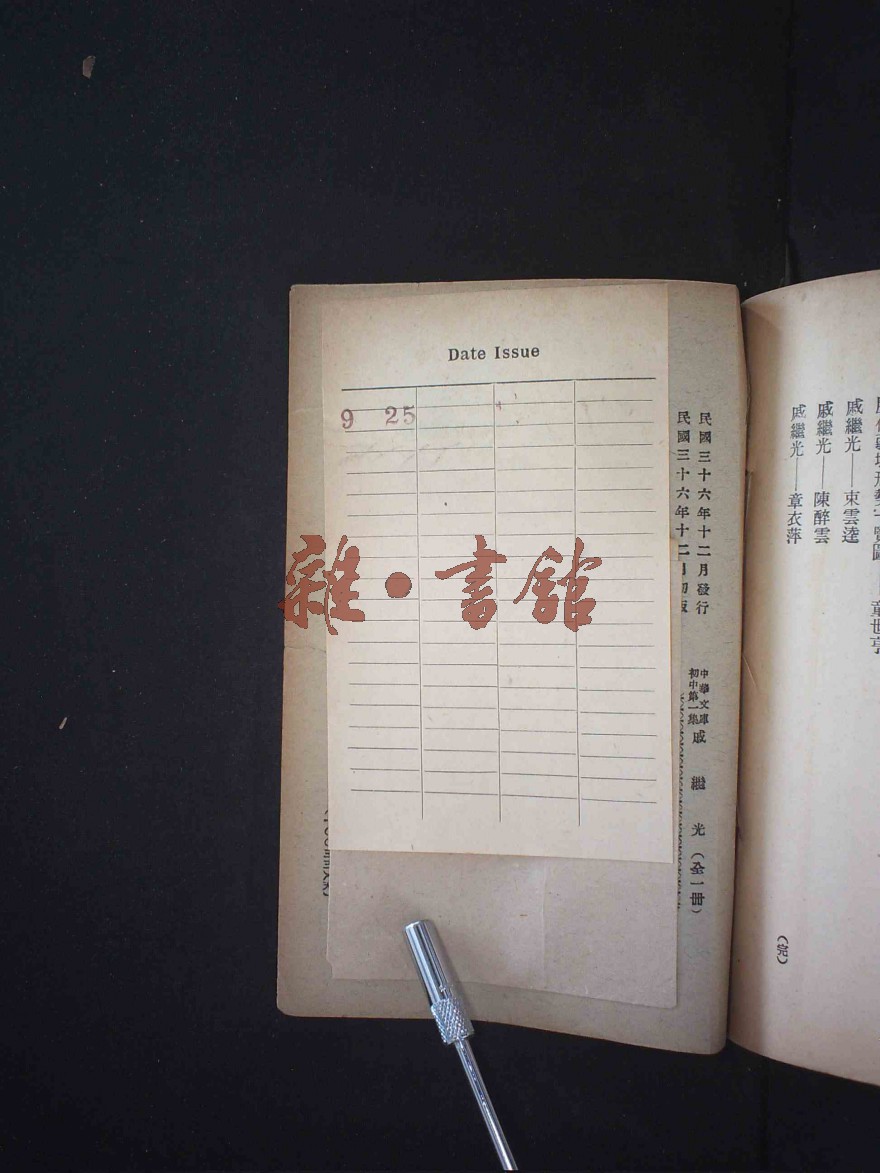 戚繼光——束雲逵
戚繼光——陳醉雲
戚繼光——章衣萍
(完)
民國三十六年十二月發行
民國三十六年十二月初版
中華文庫
初中第一集
戚繼光(全一冊)
Date Issue
9 25
雜·書館